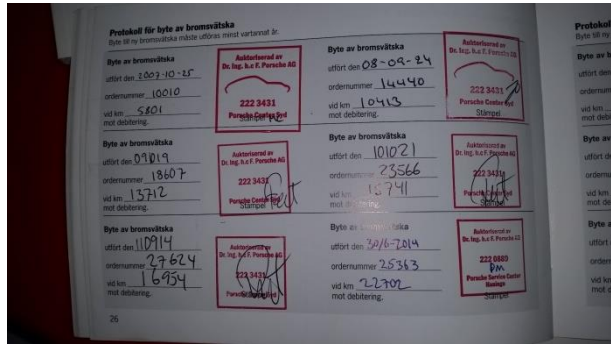 Protokoll för byte av bromsvätska
Byte till ny bromsvätska måste utföras minst vartannat år.
Byte av bromsvätska
utfört den 2007-10-25
ordernummer 10010
vid km 5801
mot debitering.
Auktoriserad av
Dr. Ing. h.c F. Porsche AG
222 3431
Porsche Center Syd
Stämpel
Byte av bromsvätska
utfört den 08-09-24
ordernummer 14440
vid km 10413
mot debitering.
Auktoriserad av
Dr. Ing. h.c F. Porsche AG
222 3431
Porsche Center Syd
Stämpel
Byte av bromsvätska
utfört den 09019
ordernummer 18607
vid km 13712
mot debitering.
Auktoriserad av
Dr. Ing. h.c F. Porsche AG
222 3431
Porsche Center Syd
Stämpel
Byte av bromsvätska
utfört den 101021
ordernummer 23566
vid km 15741
mot debitering.
Auktoriserad av
Dr. Ing. h.c F. Porsche AG
222 3431
Porsche Center Syd
Stämpel
Byte av bromsvätska
utfört den 110914
ordernummer 27624
vid km 16954
mot debitering.
Auktoriserad av
Dr. Ing. h.c F. Porsche AG
222 3431
Stämpel
Byte av bromsvätska
utfört den 30/6-2014
ordernummer 25363
vid km 22702
mot debitering.
Auktoriserad av
Dr. Ing. h.c F. Porsche AG
222 0880
Porsche Service Center
Haninge
Stämpel
26